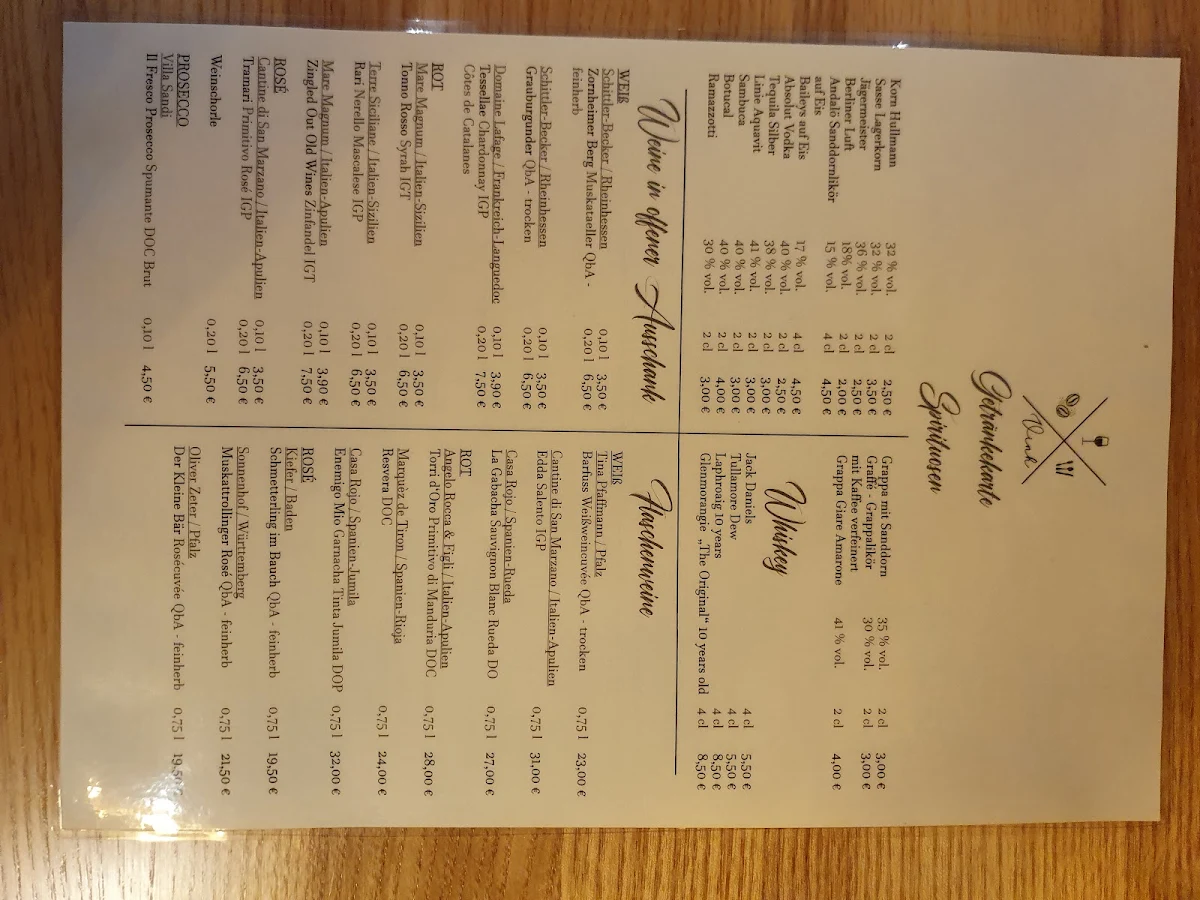 Vink
Getränkekarte
Spirituosen
Korn Hullmann 32 % vol. 2 cl 2,50 €
Sasse Lagerkorn 32 % vol. 2 cl 3,50 €
Jägermeister 36 % vol. 2 cl 2,50 €
Berliner Luft 18% vol. 2 cl 2,00 €
Andalö Sanddornlikör 15 % vol. 4 cl 4,50 €
auf Eis
Baileys auf Eis 17 % vol. 4 cl 4,50 €
Absolut Vodka 40 % vol. 2 cl 2,50 €
Tequila Silber 38 % vol. 2 cl 3,00 €
Linie Aquavit 41 % vol. 2 cl 3,00 €
Sambuca 40 % vol. 2 cl 3,00 €
Botucal 40 % vol. 2 cl 4,00 €
Ramazzotti 30 % vol. 2 cl 3,00 €
Grappa mit Sanddorn 35 % vol. 2 cl 3,00 €
Graffé - Grappalikör 30 % vol. 2 cl 3,00 €
mit Kaffee verfeinert
Grappa Giare Amarone 41 % vol. 2 cl 4,00 €
Whiskey
Jack Daniels 4 cl 5,50 €
Tullamore Dew 4 cl 5,50 €
Laphroaig 10 years 4 cl 8,50 €
Glenmorangie „The Original“ 10 years old 4 cl 8,50 €
Weine in offener Ausschank
WEIß
Schittler-Becker / Rheinhessen 0,10 l 3,50 €
Zornheimer Berg Muskataeller QbA - 0,20 l 6,50 €
feinherb
Schittler-Becker / Rheinhessen 0,10 l 3,50 €
Grauburgunder QbA - trocken 0,20 l 6,50 €
Domaine Lafage / Frankreich-Languedoc 0,10 l 3,90 €
Tessellae Chardonnay IGP 0,20 l 7,50 €
Côtes de Catalanes
ROT
Mare Magnum / Italien-Sizilien 0,10 l 3,50 €
Tonno Rosso Syrah IGT 0,20 l 6,50 €
Terre Siciliane / Italien-Sizilien 0,10 l 3,50 €
Rari Nerello Mascalese IGP 0,20 l 6,50 €
Mare Magnum / Italien-Apulien 0,10 l 3,90 €
Zingled Out Old Wines Zinfandel IGT 0,20 l 7,50 €
ROSÉ
Cantine di San Marzano / Italien-Apulien 0,10 l 3,50 €
Tramari Primitivo Rosé IGP 0,20 l 6,50 €
Weinschorle 0,20 l 5,50 €
PROSECCO
Villa Sandi
Il Fresco Prosecco Spumante DOC Brut 0,10 l 4,50 €
Flaschenweine
WEIß
Tina Pfaffmann / Pfalz
Barfuss Weißweincuvée QbA - trocken 0,75 l 23,00 €
Cantine di San Marzano / Italien-Apulien
Edda Salento IGP 0,75 l 31,00 €
Casa Rojo / Spanien-Rueda
La Gabacha Sauvignon Blanc Rueda DO 0,75 l 27,00 €
ROT
Angelo Rocca & Figli / Italien-Apulien
Torri d'Oro Primitivo di Manduria DOC 0,75 l 28,00 €
Marquèz de Tiron / Spanien-Rioja
Resvera DOC 0,75 l 24,00 €
Casa Rojo / Spanien-Jumila
Enemigo Mio Garnacha Tinta Jumila DOP 0,75 l 32,00 €
ROSÉ
Kiefer / Baden
Schmetterling im Bauch QbA - feinherb 0,75 l 19,50 €
Sonnenhof / Württemberg
Muskattrollinger Rosé QbA - feinherb 0,75 l 21,50 €
Oliver Zeter / Pfalz
Der Kleine Bär Rosécuvée QbA - feinherb 0,75 l 19,50 €